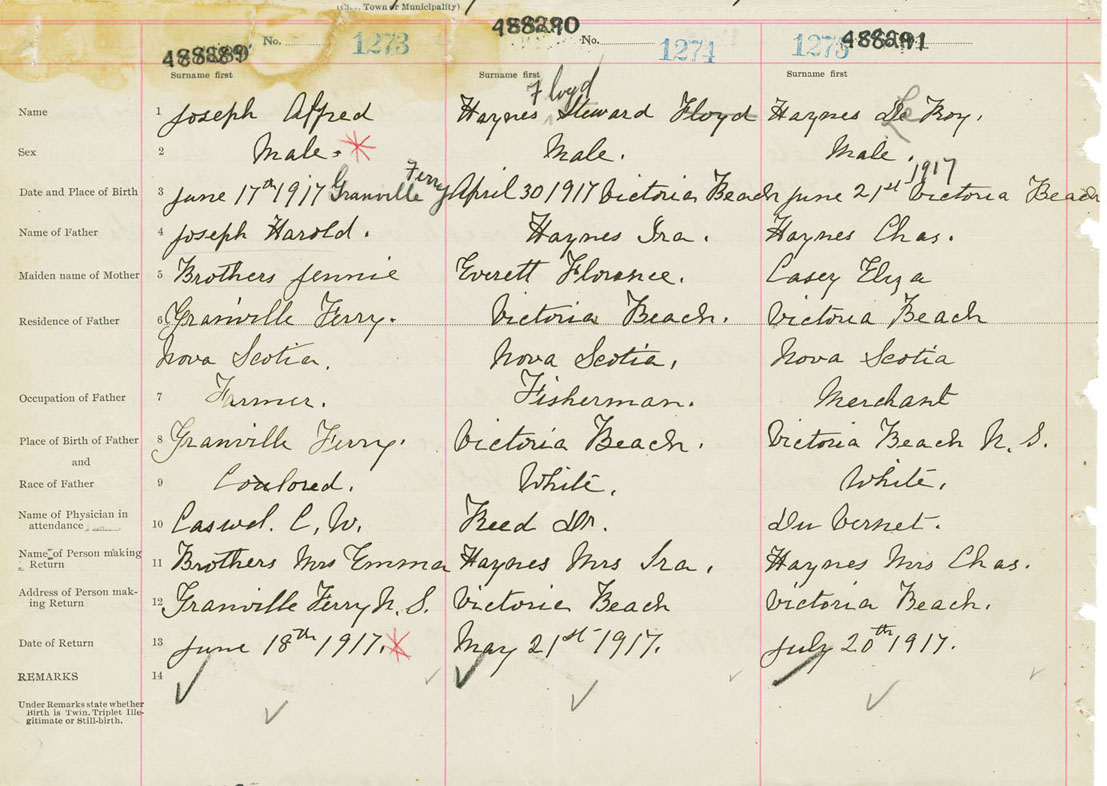 (City, Town or Municipality)
488289 488290 488291
No. 1273 No. 1274 1275
Surname first Surname first Surname first
Floyd
Name 1 Joseph Alfred Haynes Steward Floyd Haynes Le Roy.
Sex 2 Male. Male. Male.
Ferry 1917
Date and Place of Birth 3 June 17th 1917 Granville April 30 1917 Victoria Beach June 21st Victoria Beach
Name of Father 4 Joseph Harold. Haynes Ira. Haynes Chas.
Maiden name of Mother 5 Brothers Jennie Everett Florence. Casey Eliza
Residence of Father 6 Granville Ferry. Victoria Beach. Victoria Beach
Nova Scotia. Nova Scotia, Nova Scotia
Occupation of Father 7 Farmer. Fisherman. Merchant
Place of Birth of Father 8 Granville Ferry. Victoria Beach. Victoria Beach N. S.
and
Race of Father 9 Coulored. White, White,
Name of Physician in
attendance 10 Caswel. C, W. Reed Dr. Du Vernet.
Name of Person making
Return 11 Brothers Mrs Emma Haynes Mrs Ira, Haynes Mrs Chas.
Address of Person mak-
ing Return 12 Granville Ferry N, S. Victoria Beach Victoria Beach.
Date of Return 13 June 18th 1917. May 21st 1917. July 20th 1917.
REMARKS 14
Under Remarks state whether
Birth is Twin, Triplet Ille-
gitimate or Still-birth.